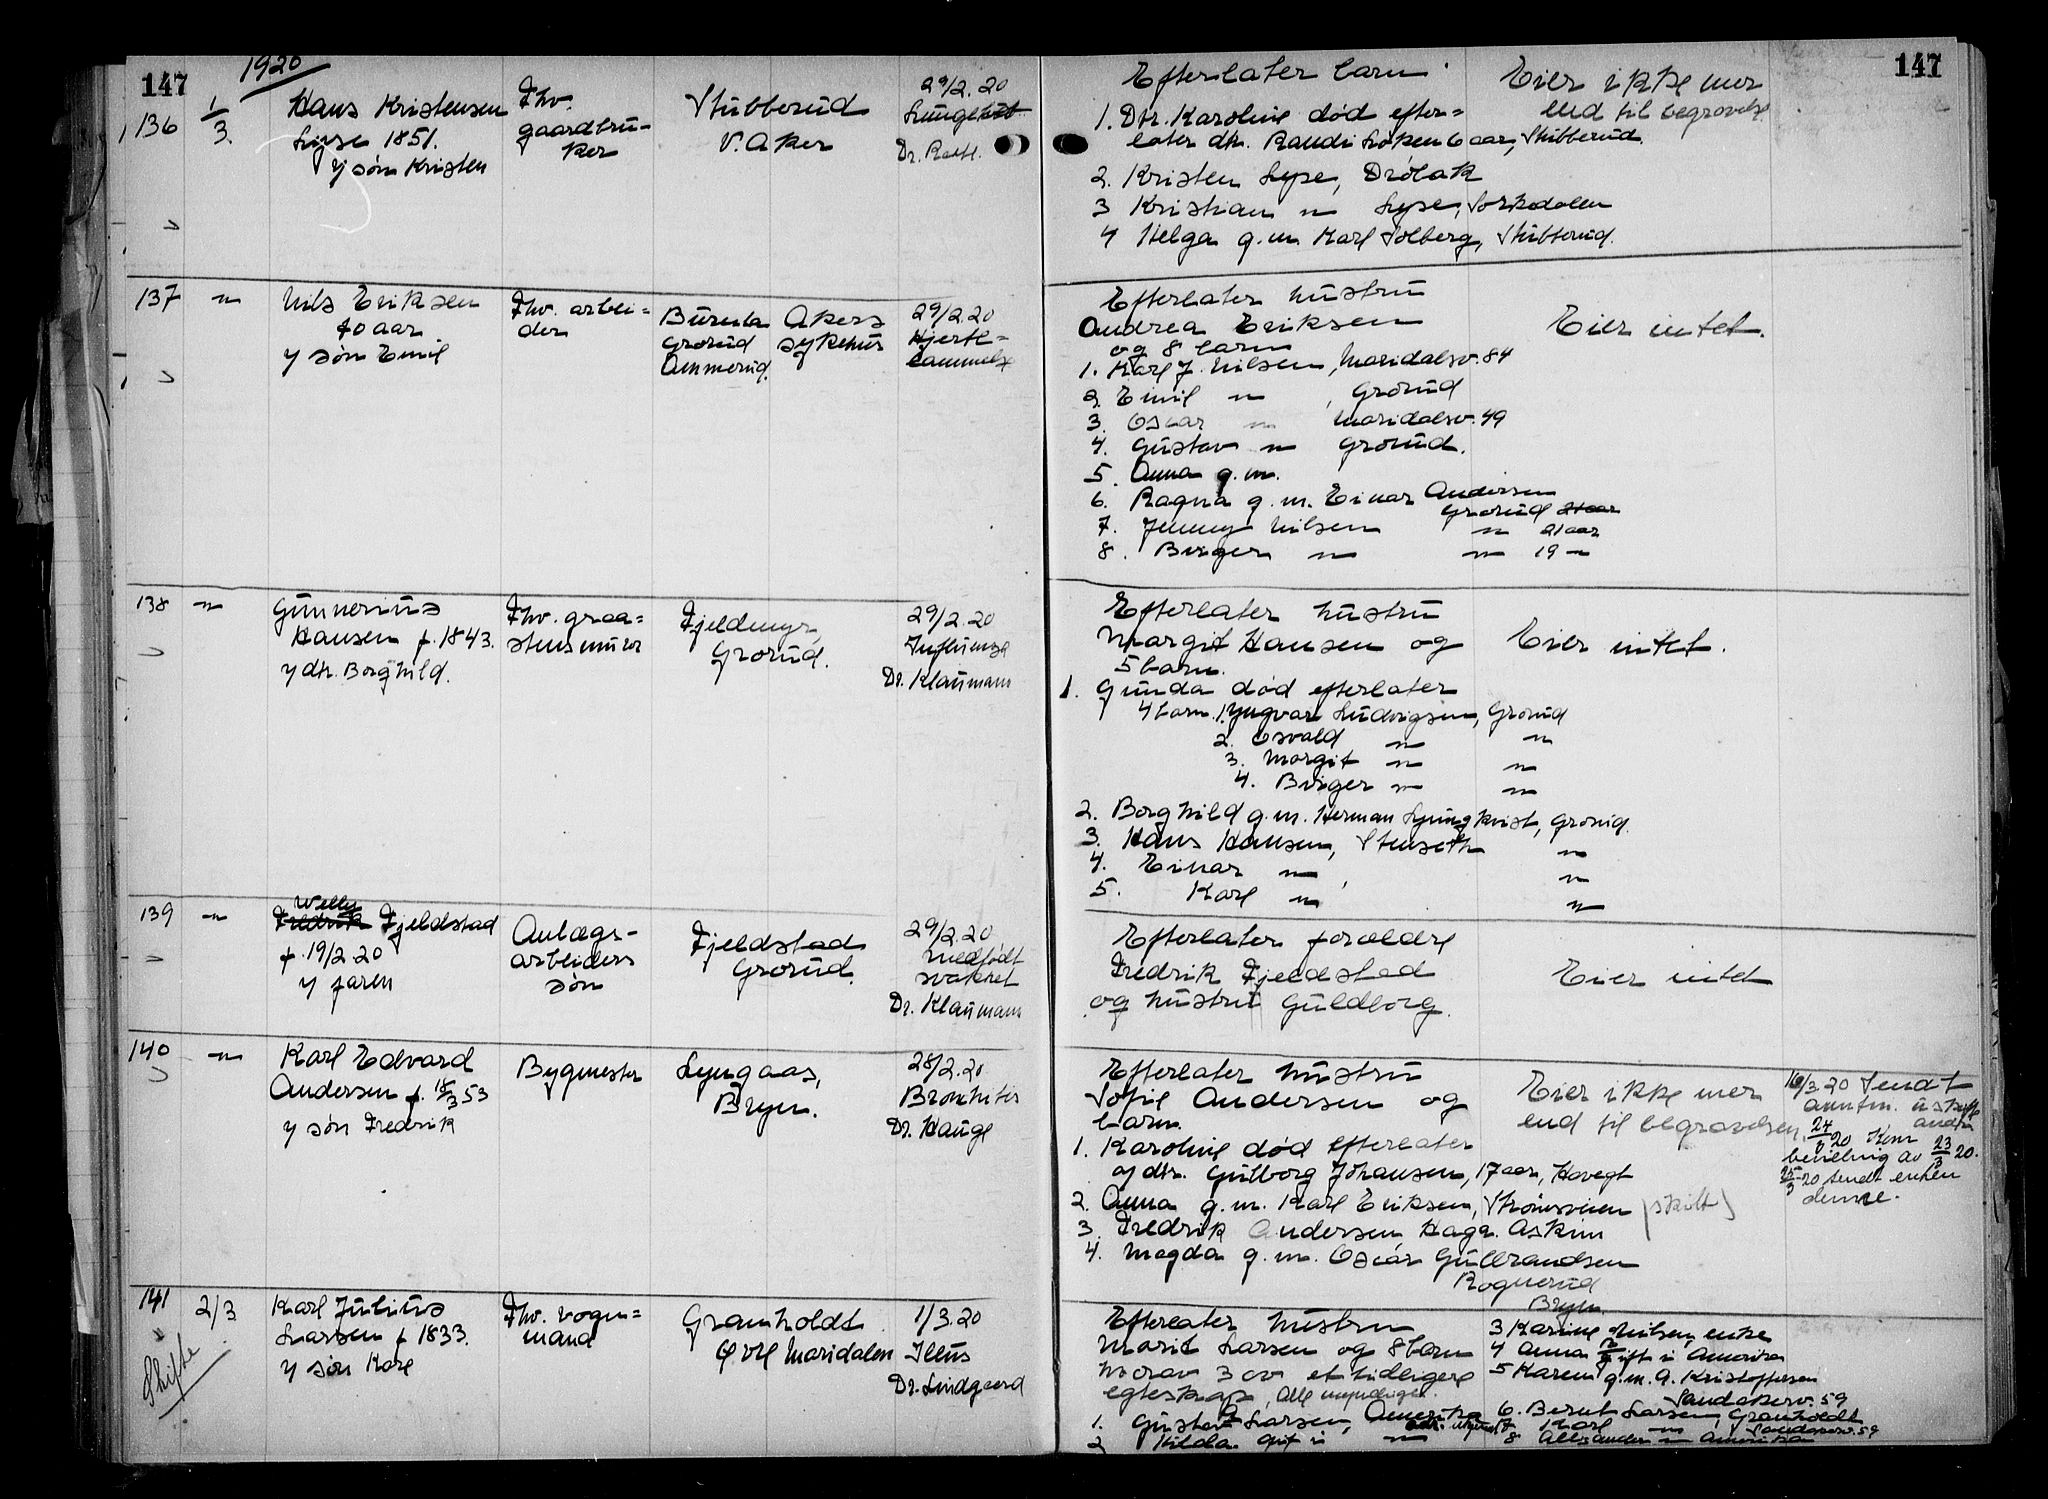 147
1920
136
1/3.
Hans Kristensen
Lyse 1851.
v/ søn Kristen
Fhv.
gaardbru-
ker
Stubberud
V. Aker
29/2. 20
Efterlater barn
1. Dtr. Karoline død efter=
later dtr. Randi Løken 6 aar, Stubberud.
2. Kristen Lyse, Drøbak
3 Kristian " Lyse, Sørkedalen
4 Helga g.m. Karl Solberg, Stubberud.
Eier ikke mer
end til begravelse
147
137
"
Nils Eriksen
70 aar
v/ søn Emil
Fhv. arbei=
der
Grorud
Ammerud.
Akers
sykehus
29/2.20
Hjerte=
lammelse
Efterlater hustru
Andrea Eriksen
og 8 barn
1. Karl J. Nilsen, Maridalsv. 84
2. Emil " , Grorud
3. Oscar " Maridalsv. 49
4. Gustav " Grorud.
5. Anna g.m.
6. Ragna g.m. Einar Andersen
Grorud 21 aar
7. Jenny Nilsen " 21 aar
8. Birger " " 19 "
Eier intet.
138
"
Gunnerius
Hansen f. 1843.
v/ dtr. Borghild.
Fhv. graa=
stensmurer
Fjeldmyr,
Grorud.
29/2.20
Influensa
Dr. Klaumann
Efterlater hustru
Margit Hansen og
5 barn.
1. Gunda død efterlater
4 barn 1. Yngvar Ludvigsen, Grorud
2. Osvald " "
3. Margit " "
4. Birger " "
2. Borghild g.m. Herman Ljungkvist, Grorud.
3. Hans Hansen, Stenseth "
4. Einar " , "
5. Karl " "
Eier intet.
139
"
Welly
Fredrik Fjeldstad
f. 19/2.20
v/ faren
Anlægs-
arbeiders
søn
Fjeldstad
Grorud.
29/2.20
Medfødt
svakhet
Dr. Klaumann
Efterlater forældre
Fredrik Fjeldstad
og hustru Guldborg.
Eier intet
140
"
Karl Edvard
Andersen f. 18/3 53
v/ søn Fredrik
Bygmester
Lyngaas,
Bryn.
28/2.20
Bronkitis
Dr. Hauge
Efterlater hustru
Sofie Andersen og
barn.
1. Karoline død efterlater
v/ dtr. Gulborg Johansen, 17 aar, Høvegt
2. Anna g.m. Karl Eriksen, Strømsveien (skilt)
3. Fredrik Andersen, Haga. Askim
4. Magda g.m. Oscar Gulbrandsen
Rognerud
Bryn
Eier ikke mer
end til begravelsen.
16/3.20 Sendt
24/3 20 Kom
bevilling av 23/3 20.
25/3 20 sendt enken
denne.
141
Skifte
2/3
Karl Julius
Larsen f 1833.
v/ søn Karl
Fhv. vogn=
mand
Gramholdt
Øvre Maridalen
1/3.20
Dr. Lindgaard
Efterlater hustru
Marit Larsen og 8 barn
hvorav 3 av et tidligere
egteskap, Alle myndige.
1. Gustav Larsen, Amerika
2 Hilda gift i "
3 Karine Nilsen, enke
4 Anna gift i Amerika
5 Karen g.m. A. Kristoffersen
Sandakerv. 59
6. Bernt Larsen, Gramholdt
7 Karl " Sandakerv. 59
8 Aleksander " Amerika